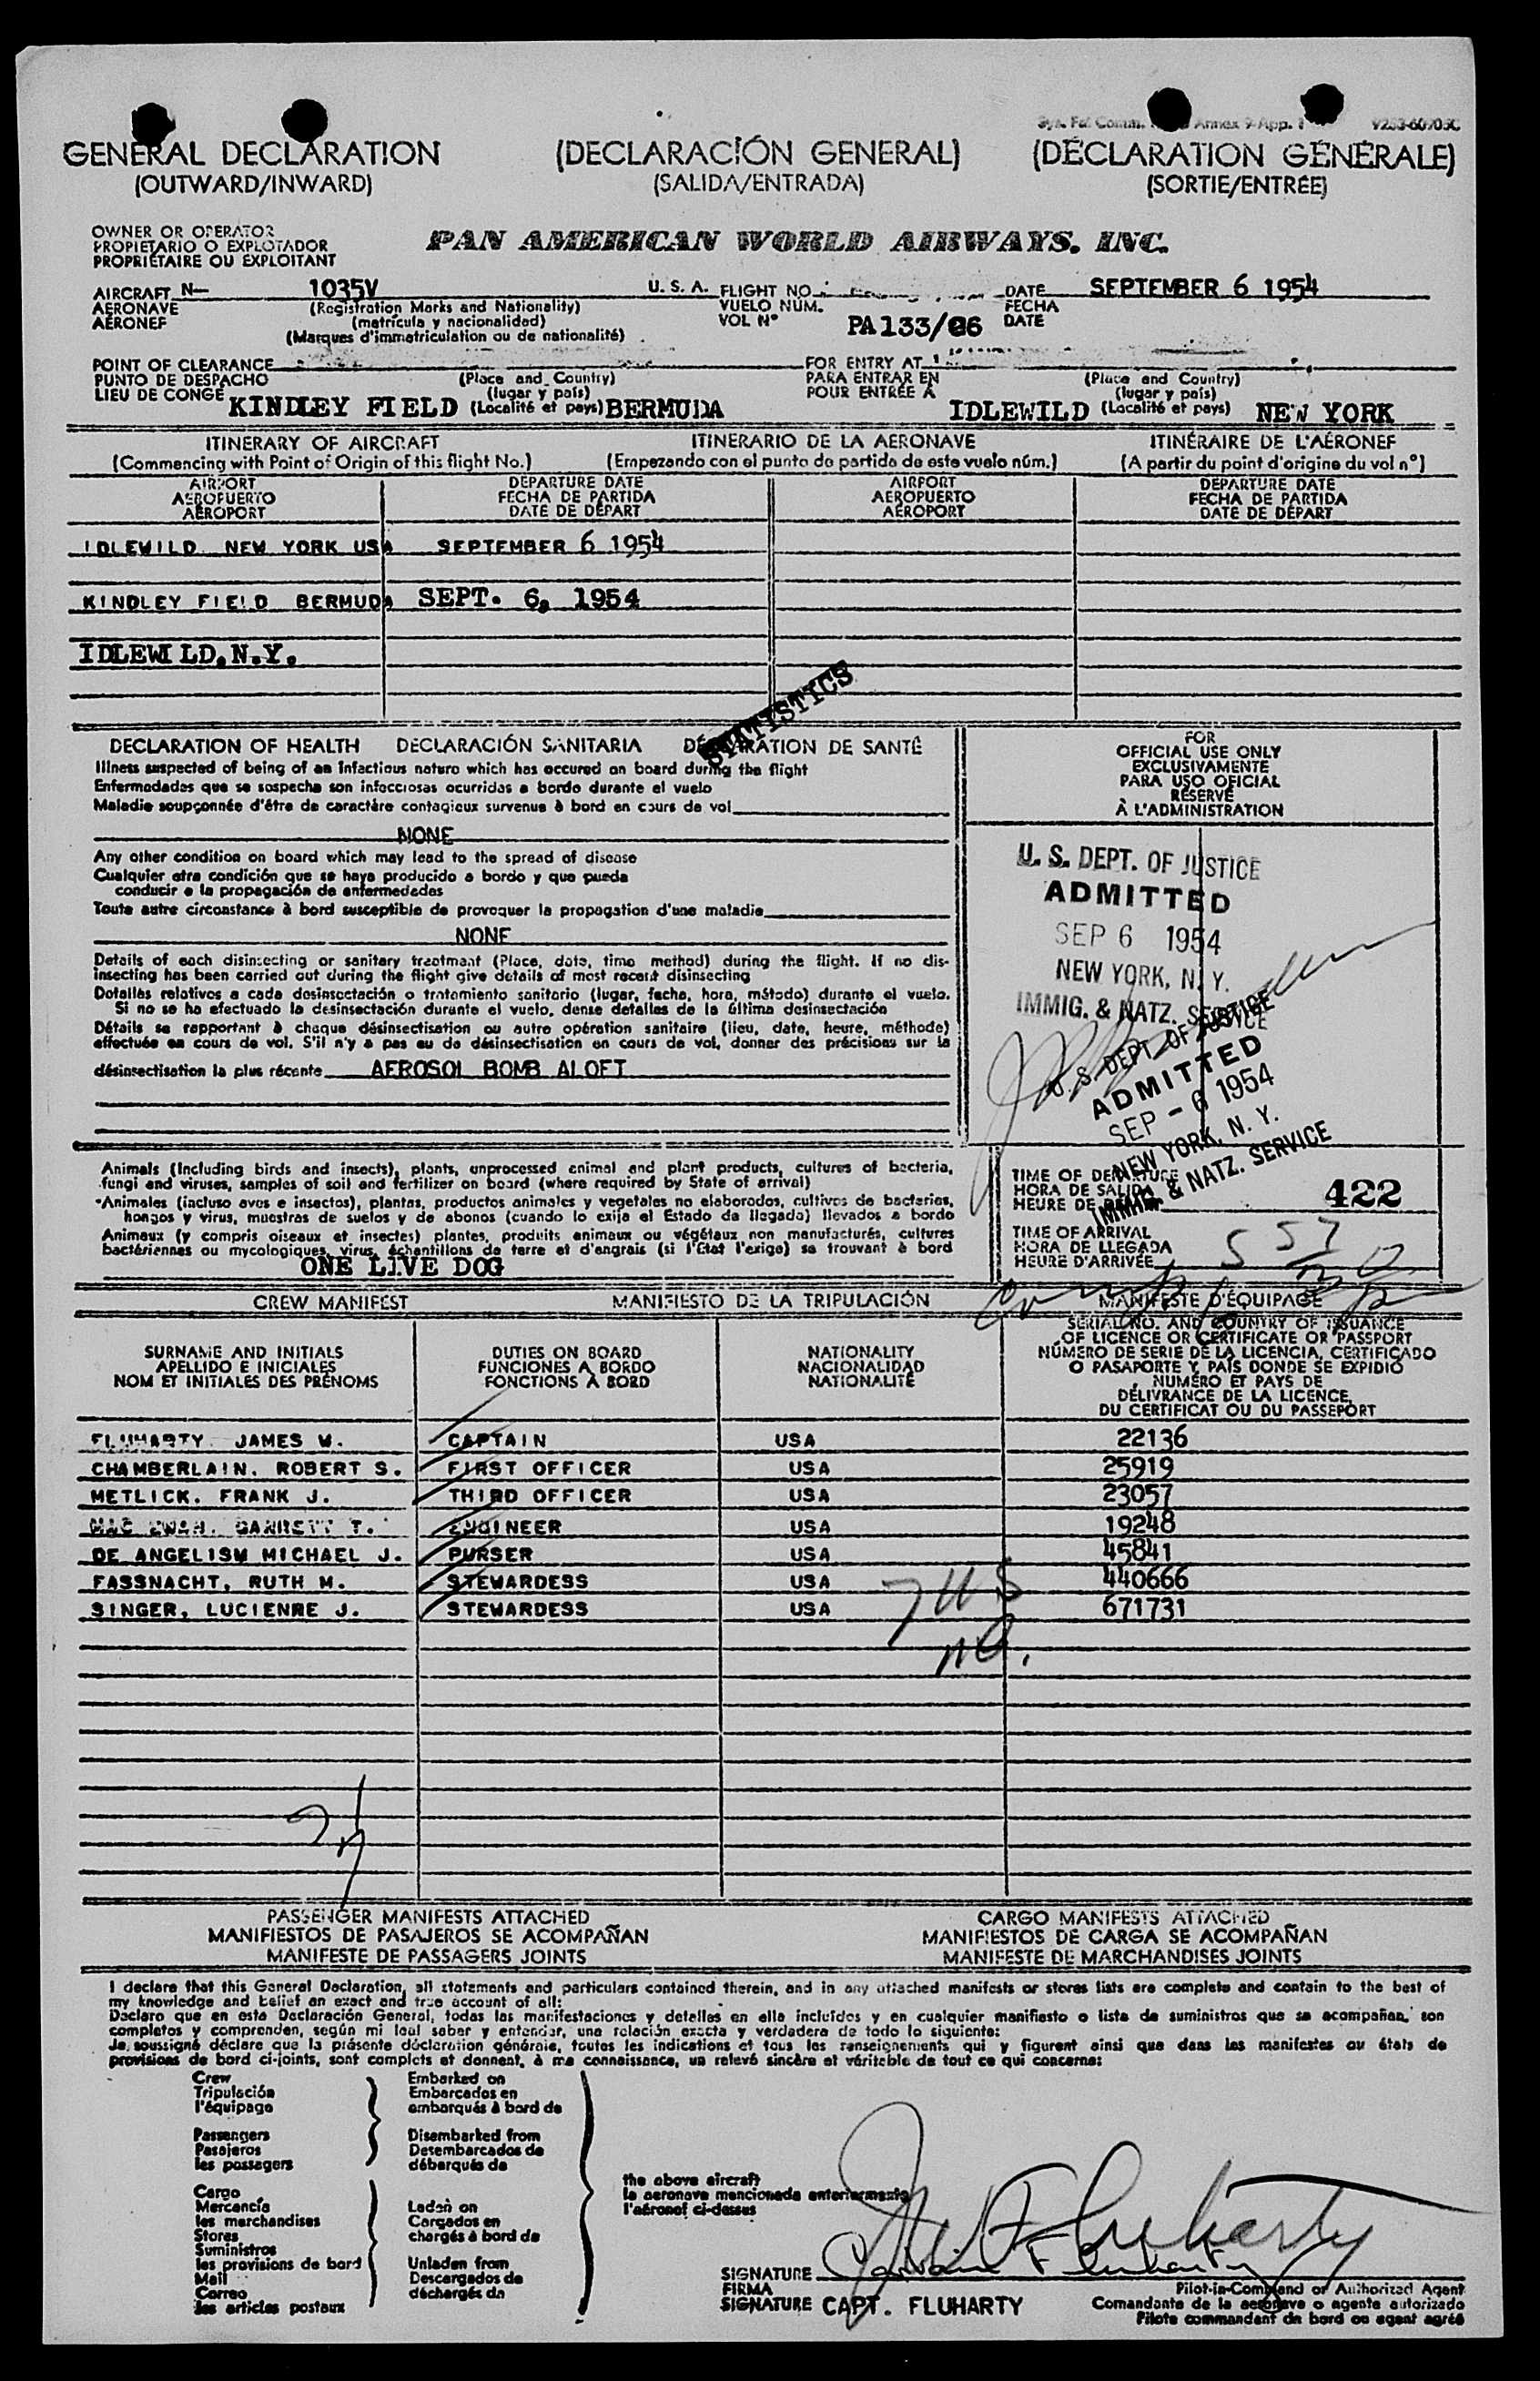 GENERAL DECLARATION (DECLARACIÓN GENERAL) (DÉCLARATION GÉNÉRALE)
(OUTWARD/INWARD) (SALIDA/ENTRADA) (SORTIE/ENTRÉE)
OWNER OR OPERATOR
PROPIETARIO O EXPLOTADOR
PROPRIÉTAIRE OU EXPLOITANT
PAN AMERICAN WORLD AIRWAYS, INC.
AIRCRAFT N— 1035V U. S. A. FLIGHT NO. DATE SEPTEMBER 6 1954
AERONAVE (Registration Marks and Nationality) VUELO NUM. FECHA
AÉRONEF (matrícula y nacionalidad) VOL Nº PA133/ DATE
(Marques d'immatriculation ou de nationalité)
POINT OF CLEARANCE FOR ENTRY AT
PUNTO DE DESPACHO (Place and Country) PARA ENTRAR EN (Place and Country)
LIEU DE CONGÉ (lugar y país) POUR ENTRÉE À (lugar y país)
KINDLEY FIELD (Localité et pays) BERMUDA IDLEWILD (Localité et pays) NEW YORK
ITINERARY OF AIRCRAFT ITINERARIO DE LA AERONAVE ITINÉRAIRE DE L'AÉRONEF
(Commencing with Point of Origin of this flight No.) (Empezando con el punto de partida de este vuelo núm.) (A partir du point d'origine du vol nº)
AIRPORT DEPARTURE DATE AIRPORT DEPARTURE DATE
AEROPUERTO FECHA DE PARTIDA AEROPUERTO FECHA DE PARTIDA
AÉROPORT DATE DE DÉPART AÉROPORT DATE DE DÉPART
IDLEWILD NEW YORK USA SEPTEMBER 6 1954
KINDLEY FIELD BERMUDA SEPT. 6, 1954
IDLEWILD,N.Y.
STATISTICS
DECLARATION OF HEALTH DECLARACIÓN SANITARIA DÉCLARATION DE SANTÉ
Illness suspected of being of an infectious nature which has occured on board during the flight
Enfermedades que se sospecha son infecciosas ocurridas a bordo durante el vuelo
Maladie soupçonnée d'être de caractère contagieux survenue à bord en cours de vol
NONE
Any other condition on board which may lead to the spread of disease
Cualquier otra condición que se haya producido a bordo y que pueda
conducir a la propagación de enfermedades
Toute autre circonstance à bord susceptible de provoquer la propagation d'une maladie
NONE
Details of each disinsecting or sanitary treatment (Place, date, time method) during the flight. If no dis-
insecting has been carried out during the flight give details of most recent disinsecting
Detalles relativos a cada desinsectación o tratamiento sanitario (lugar, fecha, hora, método) durante el vuelo.
Si no se ha efectuado la desinsectación durante el vuelo, dense detalles de la última desinsectación
Détails se rapportant à chaque désinsectisation ou autre opération sanitaire (lieu, date, heure, méthode)
effectuée en cours de vol. S'il n'y a pas eu de désinsectisation en cours de vol, donner des précisions sur la
désinsectisation la plus récente AEROSOL BOMB ALOFT
FOR
OFFICIAL USE ONLY
EXCLUSIVAMENTE
PARA USO OFICIAL
RÉSERVÉ
À L'ADMINISTRATION
U. S. DEPT. OF JUSTICE
ADMITTED
SEP 6 1954
NEW YORK, N. Y.
IMMIG. & NATZ. SERVICE
U. S. DEPT. OF JUSTICE
ADMITTED
SEP - 6 1954
NEW YORK, N. Y.
IMMIG. & NATZ. SERVICE
Animals (Including birds and insects), plants, unprocessed animal and plant products, cultures of bacteria,
fungi and viruses, samples of soil and fertilizer on board (where required by State of arrival)
Animales (incluso aves e insectos), plantas, productos animales y vegetales no elaborados, cultivos de bacterias,
hongos y virus, muestras de suelos y de abonos (cuando lo exija el Estado de llegada) llevados a bordo
Animaux (y compris oiseaux et insectes) plantes, produits animaux ou végétaux non manufacturés, cultures
bactériennes ou mycologiques, virus, échantillons de terre et d'engrais (si l'État l'exige) se trouvant à bord
ONE LIVE DOG
TIME OF DEPARTURE
HORA DE SALIDA
HEURE DE DÉPART 422
TIME OF ARRIVAL
HORA DE LLEGADA
HEURE D'ARRIVÉE 5 57
CREW MANIFEST MANIFIESTO DE LA TRIPULACIÓN MANIFESTE D'ÉQUIPAGE
SURNAME AND INITIALS
APELLIDO E INICIALES
NOM ET INITIALES DES PRÉNOMS
DUTIES ON BOARD
FUNCIONES A BORDO
FONCTIONS À BORD
NATIONALITY
NACIONALIDAD
NATIONALITÉ
SERIAL NO. AND COUNTRY OF ISSUANCE
OF LICENCE OR CERTIFICATE OR PASSPORT
NÚMERO DE SERIE DE LA LICENCIA, CERTIFICADO
O PASAPORTE Y PAÍS DONDE SE EXPIDIÓ
NUMÉRO ET PAYS DE
DÉLIVRANCE DE LA LICENCE,
DU CERTIFICAT OU DU PASSEPORT
FLUHARTY JAMES W. CAPTAIN USA 22136
CHAMBERLAIN. ROBERT S. FIRST OFFICER USA 25919
METLICK. FRANK J. THIRD OFFICER USA 23057
GARRETT T. ENGINEER USA 19248
DE ANGELISW MICHAEL J. PURSER USA 45841
FASSNACHT, RUTH M. STEWARDESS USA 440666
SINGER, LUCIENRE J. STEWARDESS USA 671731
7 US
PASSENGER MANIFESTS ATTACHED CARGO MANIFESTS ATTACHED
MANIFIESTOS DE PASAJEROS SE ACOMPAÑAN MANIFIESTOS DE CARGA SE ACOMPAÑAN
MANIFESTE DE PASSAGERS JOINTS MANIFESTE DE MARCHANDISES JOINTS
I declare that this General Declaration, all statements and particulars contained therein, and in any attached manifests or stores lists are complete and contain to the best of
my knowledge and belief an exact and true account of all:
Declaro que en esta Declaración General, todas las manifestaciones y detalles en ella incluídos y en cualquier manifiesto o lista de suministros que se acompañan, son
completos y comprenden, según mi leal saber y entender, una relación exacta y verdadera de todo lo siguiente:
Je, soussigné déclare que la présente déclaration générale, toutes les indications et tous les renseignements qui y figurent ainsi que dans les manifestes ou états de
provisions de bord ci-joints, sont complets et donnent, à ma connaissance, un relevé sincère et véritable de tout ce qui concerne:
Crew Embarked on
Tripulación Embarcados en
l'équipage embarqués à bord de
Passengers Disembarked from
Pasajeros Desembarcados de
les passagers débarqués de
the above aircraft
la aeronave mencionada anteriormente
l'aéronef ci-dessus
Cargo
Mercancía Laden on
les marchandises Cargados en
Stores chargés à bord de
Suministros
les provisions de bord Unladen from
Mail Descargados de
Correo déchargés de
les articles postaux
SIGNATURE Captain Fluharty
FIRMA Pilot-in-Command or Authorized Agent
SIGNATURE CAPT. FLUHARTY Comandante de la aeronave o agente autorizado
Pilote commandant de bord ou agent agréé